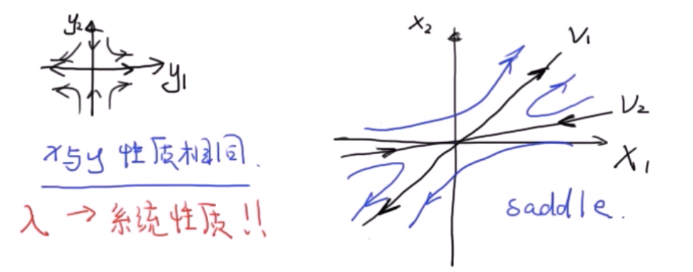 y₂
y₁
x与y 性质相同.
λ → 系统性质!!
x₂
V₁
V₂
X₁
saddle.